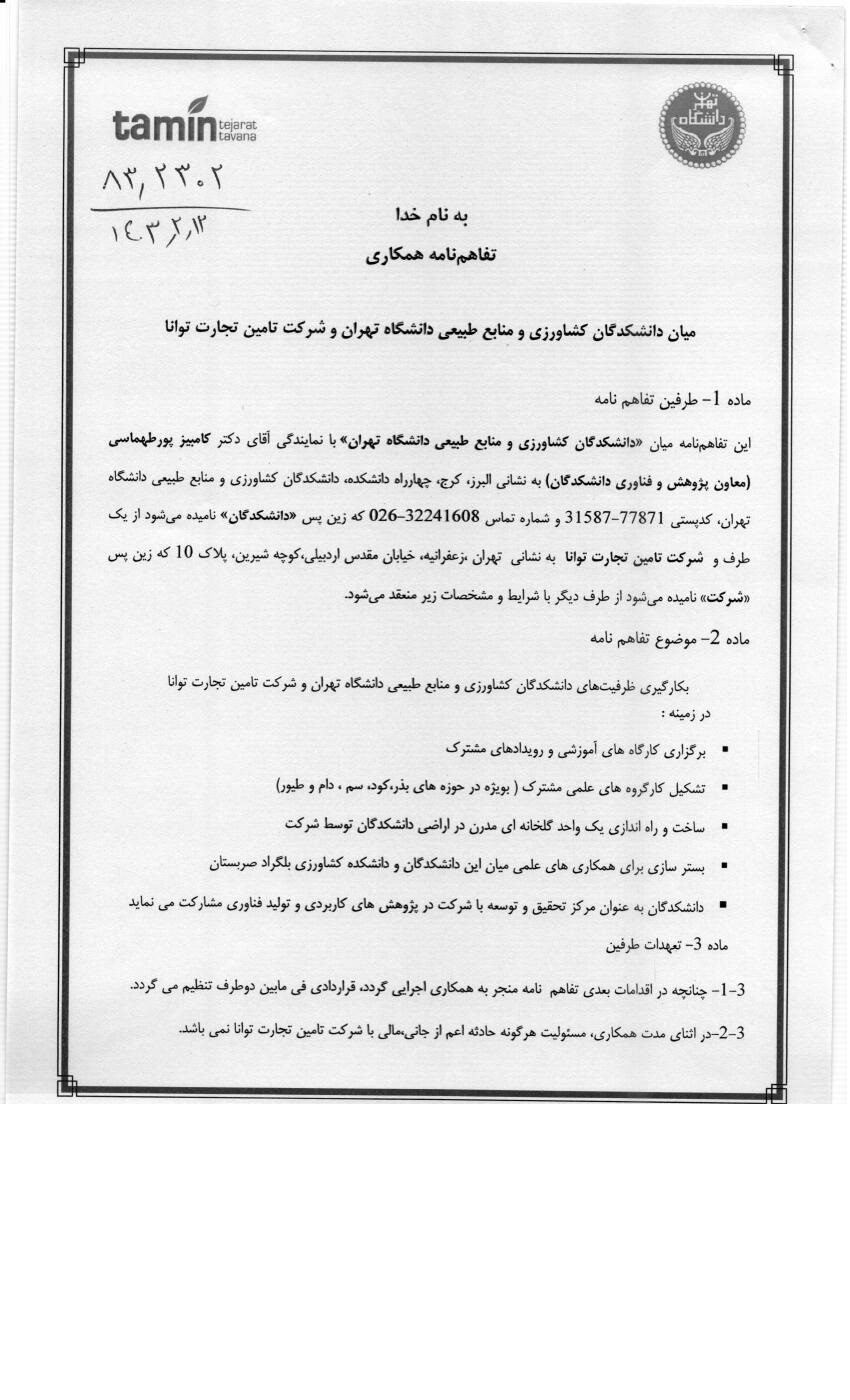 tamin tejarat
tavana
دانشگاه تهران
۸۳,۲۳۰۲
به نام خدا
تفاهم‌نامه همکاری
میان دانشکدگان کشاورزی و منابع طبیعی دانشگاه تهران و شرکت تامین تجارت توانا
ماده 1- طرفین تفاهم نامه
این تفاهم‌نامه میان «دانشکدگان کشاورزی و منابع طبیعی دانشگاه تهران» با نمایندگی آقای دکتر کامبیز پورطهماسی
(معاون پژوهش و فناوری دانشکدگان) به نشانی البرز، کرج، چهارراه دانشکده، دانشکدگان کشاورزی و منابع طبیعی دانشگاه
تهران، کدپستی 77871-31587 و شماره تماس 32241608-026 که زین پس «دانشکدگان» نامیده می‌شود از یک
طرف و شرکت تامین تجارت توانا به نشانی تهران ،زعفرانیه، خیابان مقدس اردبیلی،کوچه شیرین، پلاک 10 که زین پس
«شرکت» نامیده می‌شود از طرف دیگر با شرایط و مشخصات زیر منعقد می‌شود.
ماده 2- موضوع تفاهم نامه
بکارگیری ظرفیت‌های دانشکدگان کشاورزی و منابع طبیعی دانشگاه تهران و شرکت تامین تجارت توانا
در زمینه :
▪ برگزاری کارگاه های آموزشی و رویدادهای مشترک
▪ تشکیل کارگروه های علمی مشترک ( بویژه در حوزه های بذر،کود، سم ، دام و طیور)
▪ ساخت و راه اندازی یک واحد گلخانه ای مدرن در اراضی دانشکدگان توسط شرکت
▪ بستر سازی برای همکاری های علمی میان این دانشکدگان و دانشکده کشاورزی بلگراد صربستان
▪ دانشکدگان به عنوان مرکز تحقیق و توسعه با شرکت در پژوهش های کاربردی و تولید فناوری مشارکت می نماید
ماده 3- تعهدات طرفین
3-1- چنانچه در اقدامات بعدی تفاهم نامه منجر به همکاری اجرایی گردد، قراردادی فی مابین دوطرف تنظیم می گردد.
3-2-در اثنای مدت همکاری، مسئولیت هرگونه حادثه اعم از جانی،مالی با شرکت تامین تجارت توانا نمی باشد.